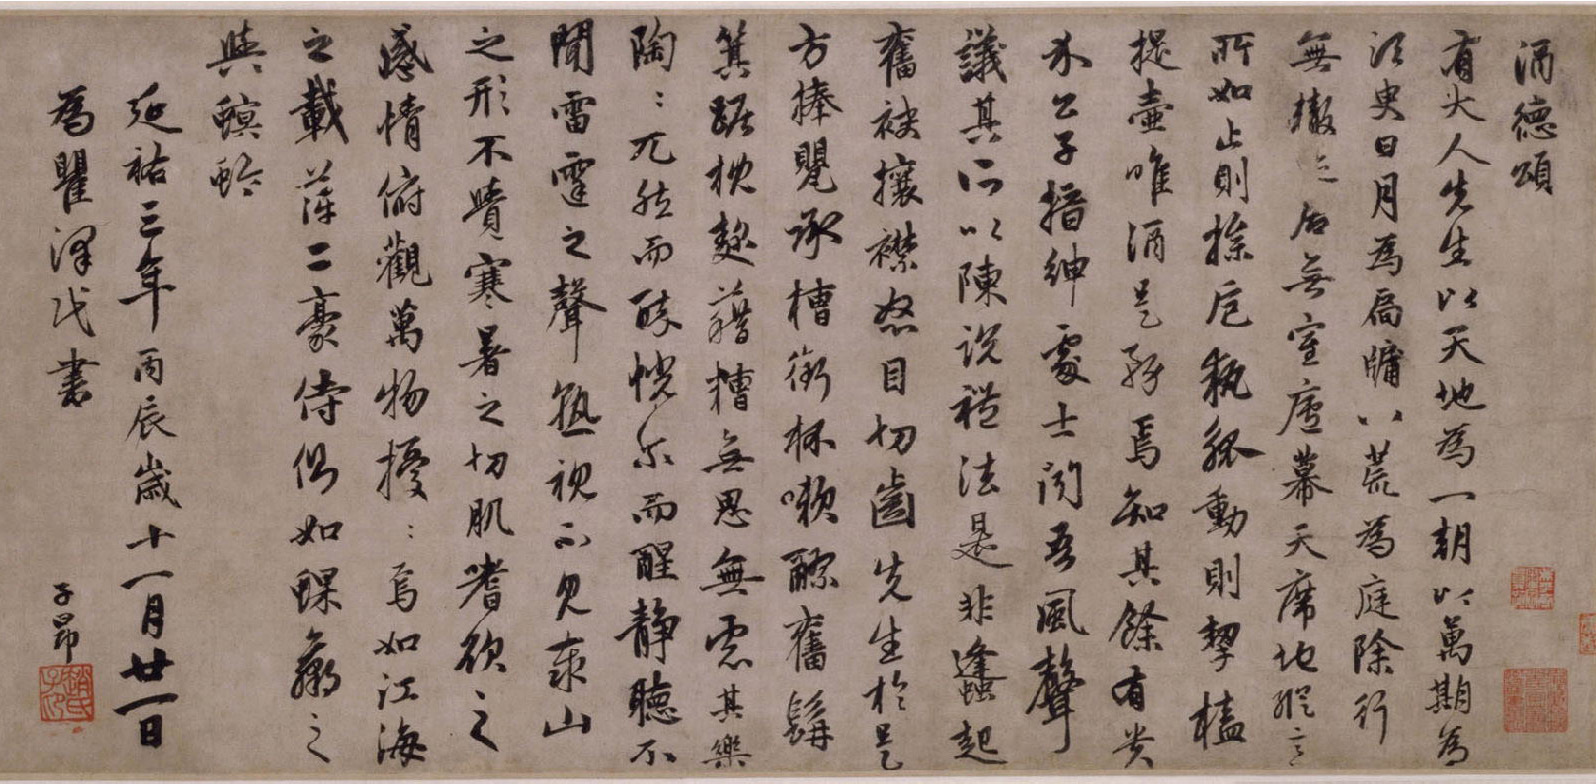 酒德頌
有大人先生以天地為一朝以萬期為
須臾日月為扃牖八荒為庭除行
無轍迹居無室廬幕天席地縱意
所如止則操巵執觚動則挈榼
提壺唯酒是務焉知其餘有貴
介公子搢紳處士聞吾風聲
議其所以陳説禮法是非蜂起
奮袂攘襟怒目切齒先生於是
方捧甖承槽銜杯嗽醪奮髯
箕踞枕麴藉糟無思無慮其樂
陶〻兀然而醉恍尔而醒静聴不
聞雷霆之聲熟視不見泰山
之形不覺寒暑之切肌嗜欲之
感情俯觀萬物擾〻焉如江海
之載萍二豪侍側如蜾蠃之
與螟蛉
延祐三年丙辰歲十一月廿一日
為瞿澤民書
子昂
趙氏子昂